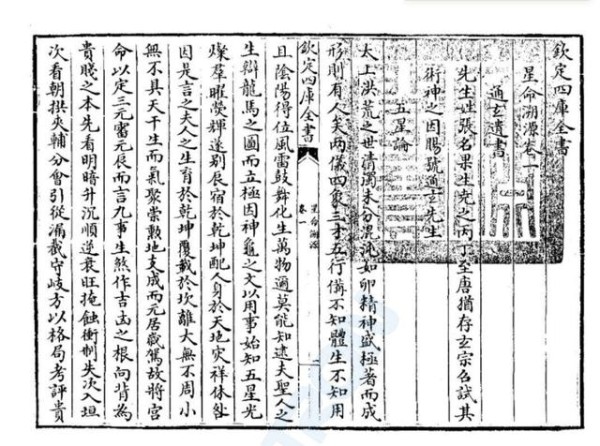 欽定四庫全書
星命溯源卷一
通玄遺書
先生姓張名果生堯之丙丁至唐猶存玄宗召試其
術神之因賜號通玄先生
五星論
太上洪荒之世清濁未分混沌如卵精神盛極著而成
形則有人矣兩儀四象三才五行備不知體生不知用
欽定四庫全書
星命溯源
卷一
一
且陰陽得位風雷鼓舞化生萬物邈莫能知逮夫聖人之
生辯龍馬之圖而立極因神龜之文以用事始知五星光
燦羣曜熒輝遂别辰宿於乾坤配人身於天地灾祥休咎
因是言之夫人之生育於乾坤覆載於坎離大無不周小
無不具天干生而氣聚崇勲地支成而元居載駕故將宫
命以定三元審元辰而言九事生煞作吉凶之根向背為
貴賤之本先看明暗升沉順逆衰旺掩蝕衝制失次入垣
次看朝拱夾輔分會引從漏截守岐方以格局考評貴